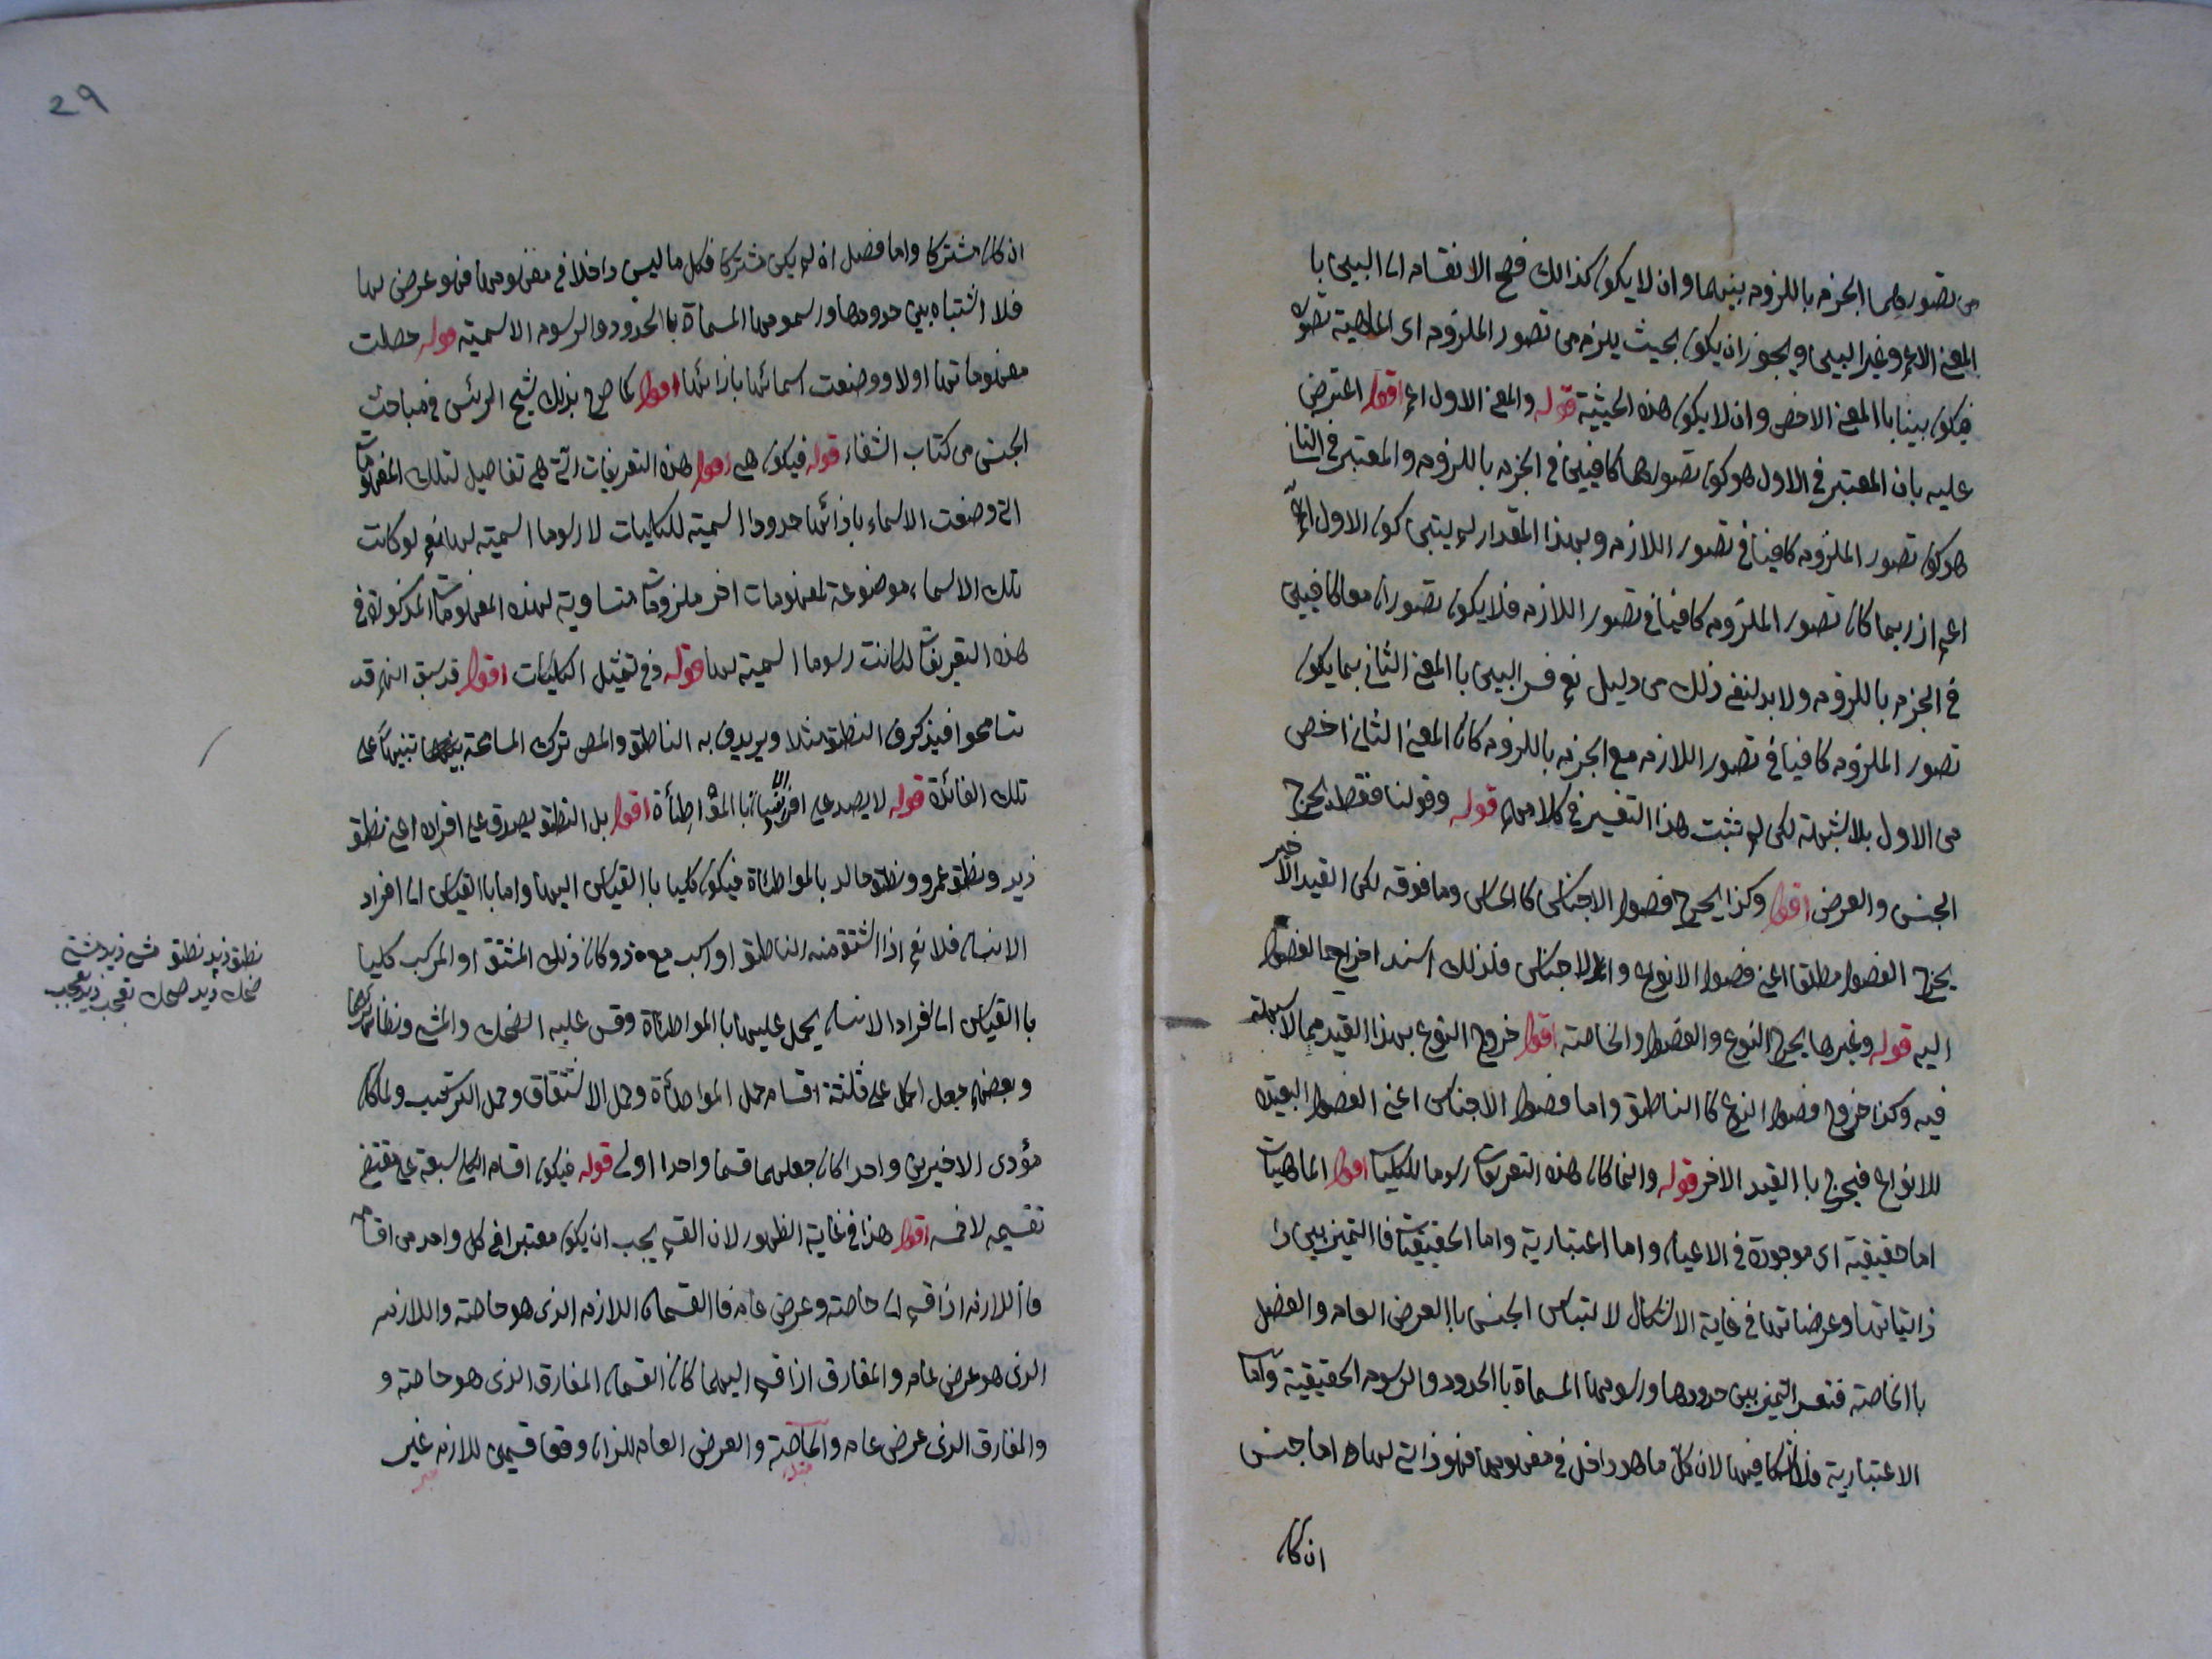 من تصورهما الجزم باللزوم بينهما وان لا يكون كذالك فصح الانقسام الى البين با
المعنى الاعم وغير البين ويجوز ان يكون بحيث يلزم من تصور الملزوم اى الماهية تصوره
فيكون بينا با المعنى الاخص وان لا يكون هذه الحيثية قوله والمعنى الاول اعم اقول اعترض
عليه بان المعتبر في الاول هو كون تصورهما كافيين في الجزم باللزوم والمعتبر في الثاني
هو كون تصور الملزوم كافيا في تصور اللازم وبهذا المقدار لم يتبين كون الاول
اعم اذ ربما كان تصور الملزوم كافيا في تصور اللازم فلا يكون تصوران معا كافيين
في الجزم باللزوم ولا بد لنفى ذلك من دليل نعم فسر البين با المعنى الثاني بما يكون
تصور الملزوم كافيا في تصور اللازم مع الجزم باللزوم كان المعنى الثاني اخص
من الاول بلا شبهة لكن لم تثبت هذا التفسير في كلامهم قوله وقولنا فقط يخرج
الجنس والعرض اقول وكذا يخرج فصول الاجناس كالحساس وما فوقه لكن القيد الاخير
يخرج الفصول مطلقا اعنى فصول الانواع والاجناس فلذلك اسند اخراج الفصول
اليه قوله وغيرها يخرج النوع والفصول والخاصة اقول خروج النوع بهذا القيد مما لا شبهة
فيه وكذا خروج فصول النوع كا الناطق واما فصول الاجناس اعنى الفصول البعيدة
للانواع فيخرج با القيد الاخر قوله وانما كان هذه التعريفات رسوما للكليات اقول الماهيات
اما حقيقية اى موجودة في الاعيان واما اعتبارية واما الحقيقيات فا التميز بين ذا
ذاتياتها وعرضياتها في غاية الاشكال لالتباس الجنس با العرض العام والفصل
با الخاصة فتعسر التميز بين حدودها ورسومها المسماة با الحدود والرسوم الحقيقية واما
الاعتبارية فلا اشكال فيها لان كل ما هو داخل في مفهومها فهو ذاتى لها اما جنس
ان كان
29
ان كان مشتركا واما فصل ان لم يكن مشتركا فكل ما ليس داخلا في مفهومها فهو عرضى لها
فلا اشتباه بين حدودها ورسومها المسماة با الحدود والرسوم الاسمية قوله حصلت
مفهوماتها اولا ووضعت اسمائها بازائها اقول كما صرح بذلك شيخ الرئس في مباحث
الجنس من كتاب الشفاء قوله فيكون هى اقول هذه التعريفات التى هى تفاصيل لتلك المفهومات
التى وضعت الاسماء بازائها حدودا اسمية للكليات لا رسوما اسمية لها نعم لو كانت
تلك الاسماء موضوعة لمفهومات اخر ملزومات متساوية لهذه المفهومات المذكورة في
هذه التعريفات لكانت رسوما اسمية لها قوله وفي تمثيل الكليات اقول قد سبق انهم قد
تسامحوا فيذكرون النطق مثلا ويريدون به الناطق والمص ترك المسامحة تنبيها على
تلك الفائدة قوله لا يصدق على افراد الانسان با المواطأة اقول بل النطق يصدق على افراده اعنى نطق
زيد ونطق عمرو ونطق خالد بالمواطأة فيكون كليا با القياس اليها واما با القياس الى افراد
الانسان فلا نعم اذا اشتق منه الناطق او ركب مع ذو كان ذلك المشتق او المركب كليا
با القياس الى افراد الانسان يحمل عليها با المواطأة وقس عليه الضحك والمشى ونظائرها
وبعضهم جعل الحمل على ثلثة اقسام حمل المواطأة وحمل الاشتقاق وحمل التركيب ولما كان
مؤدى الاخيرين واحدا كان جعلهما قسما واحدا اولى قوله فيكون اقسام الكلى سبعة على مقتضى
تقسيمه لا خمسه اقول هذا في غاية الظهور لان القسم يجب ان يكون معتبرا في كل واحد من اقسامه
فا اللازم اذا قسم الى خاصة وعرض عام فا القسمان اللازم الذى هو خاصة واللازم
الذى هو عرض عام والمفارق اذا قسم اليهما كان القسمان المفارق الذى هو خاصة و
والمفارق الذى عرض عام والخاصة والعرض العام للذان وقعا قسمين للازم غير
مبتدا
خبر
نطق زيد نطق مشى زيد مشى
ضحك زيد ضحك تعجب زيد تعجب